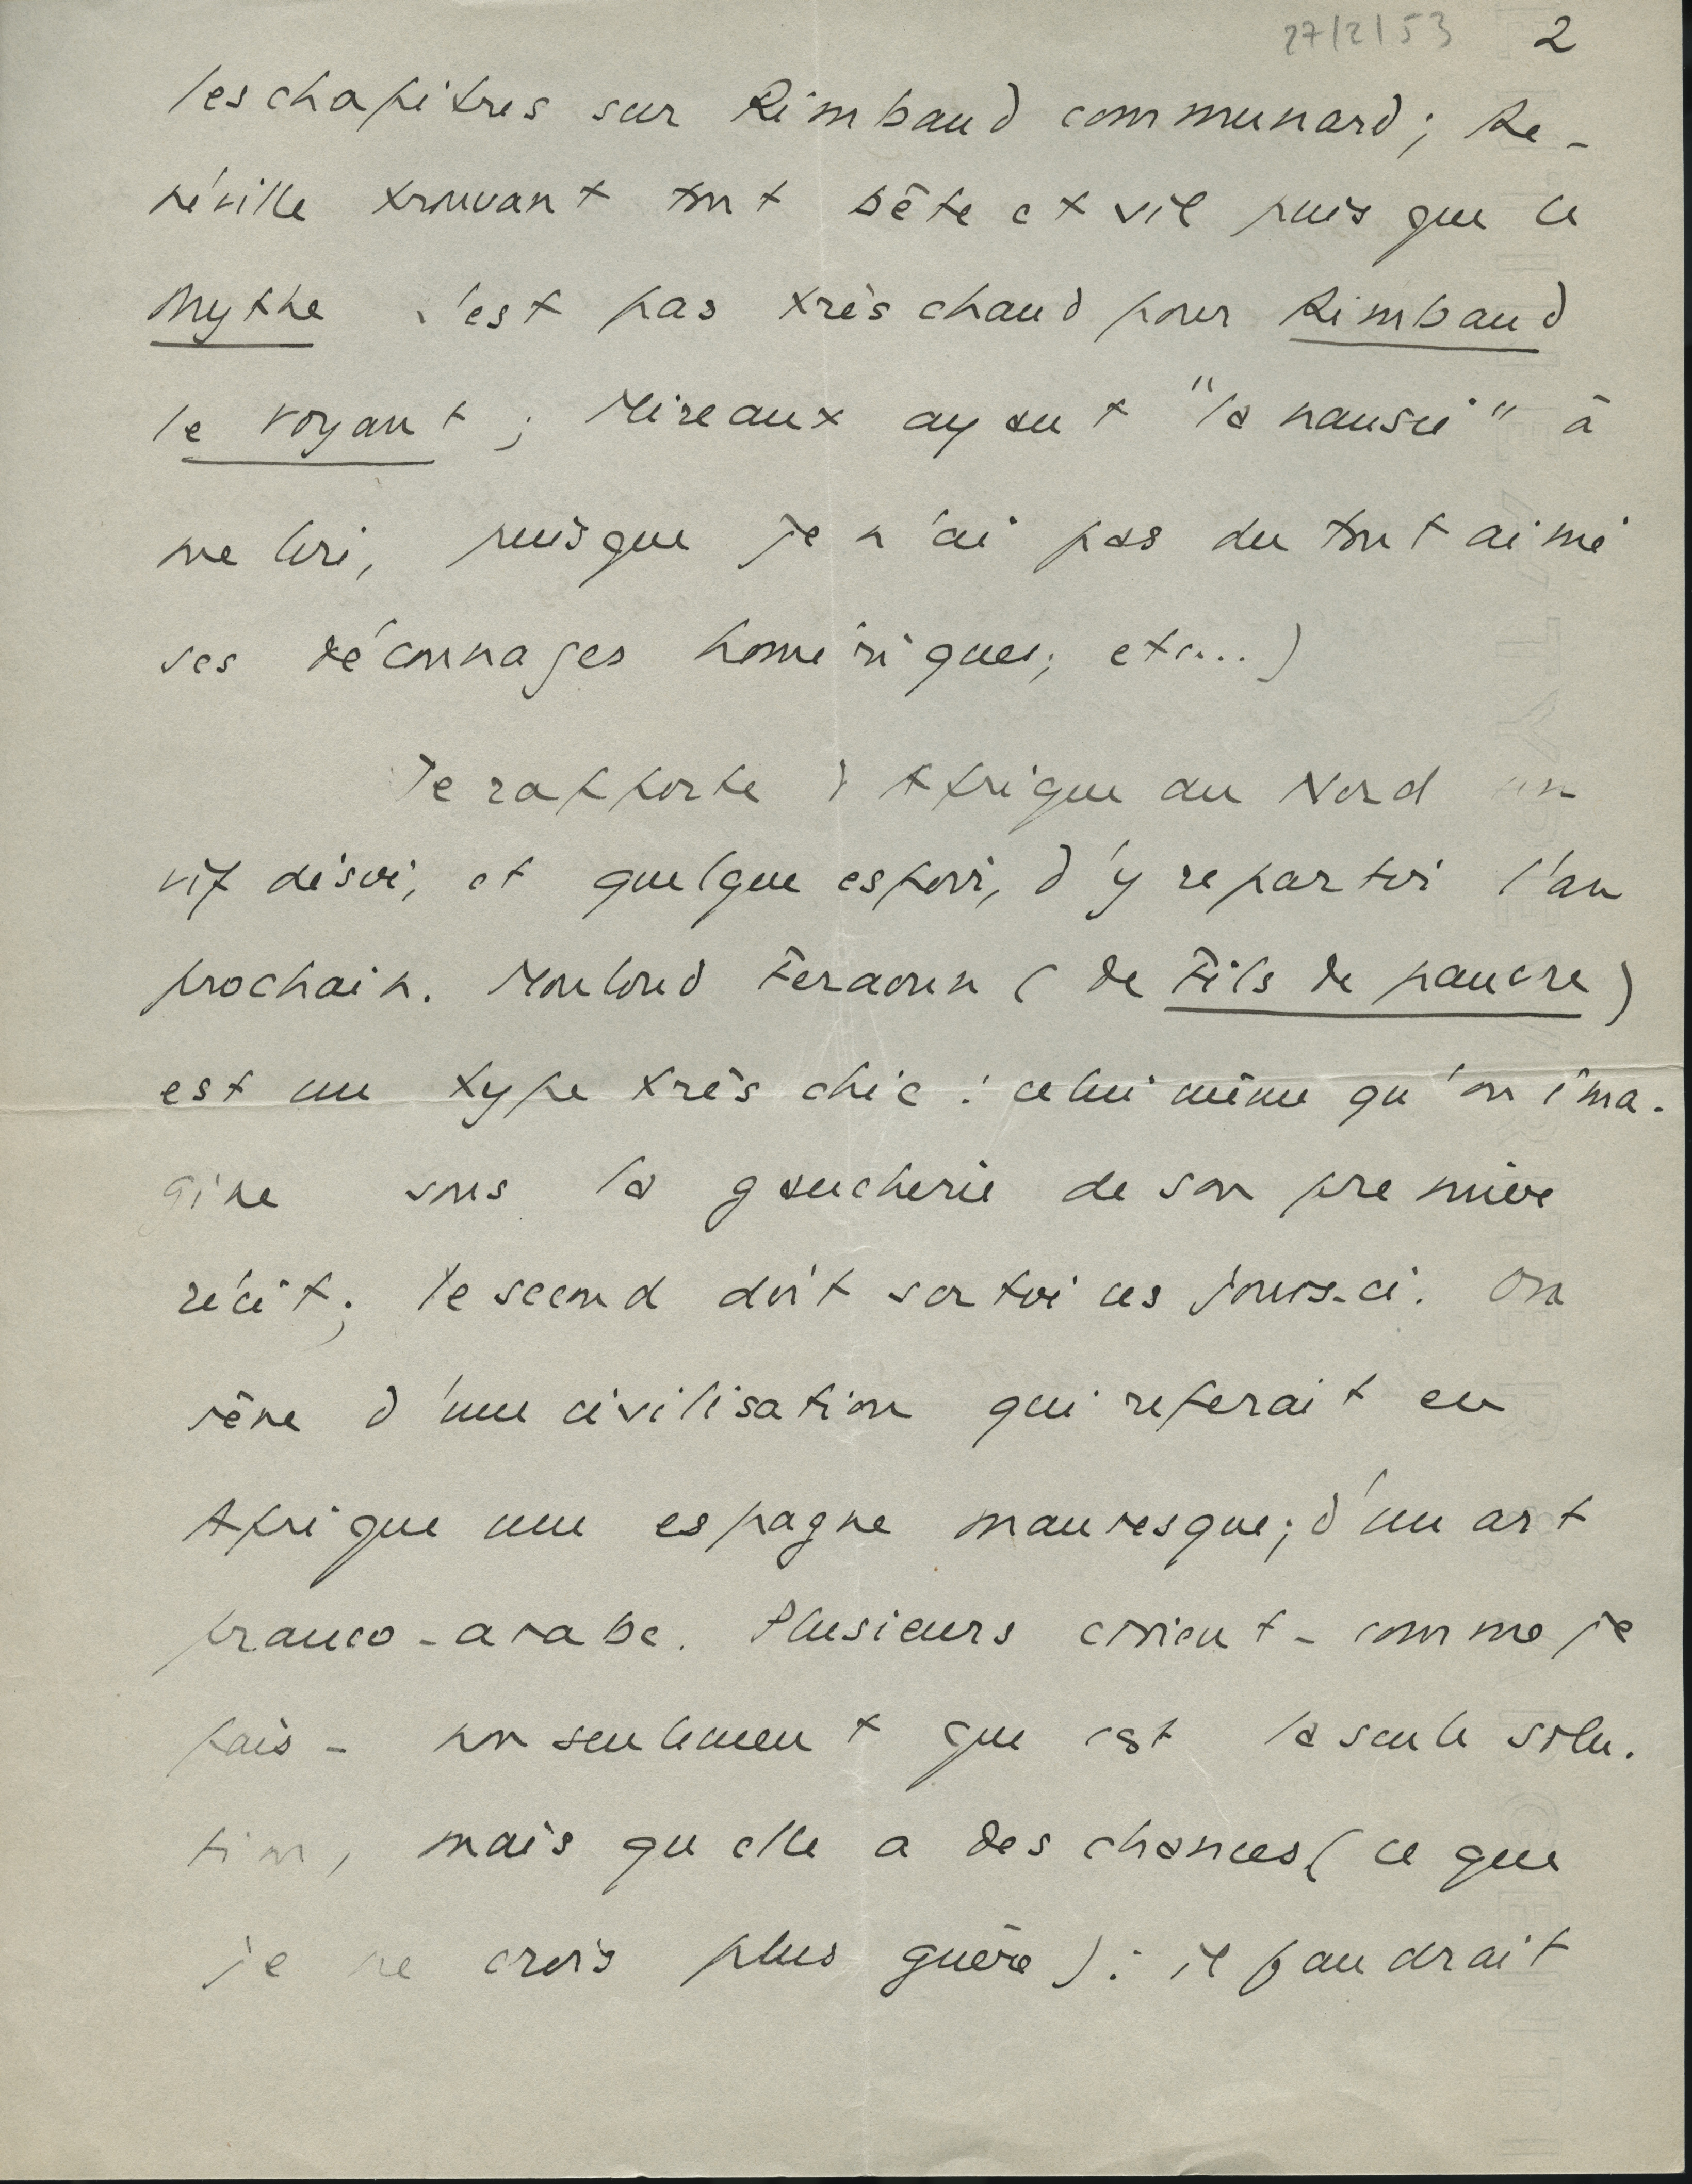 27/2/53 2
les chapitres sur Rimbaud communard ; Re-
néville trouvant tout bête et vil puis que le
Mythe n'est pas très chaud pour Rimbaud
le voyant ; Mireaux ayant "la nausée" à
me lire, puisque je n'ai pas du tout aimé
ses déconnages homériques ; etc...)
Je rapporte d'Afrique du Nord un
vif désir, et quelque espoir, d'y repartir l'an
prochain. Mouloud Feraoun (de Fils de pauvre)
est un type très chic : celui même qu'on ima-
gine sous la gaucherie de son premier
récit ; le second doit sortir ces jours-ci. On
rêve d'une civilisation qui referait en
Afrique une espagne mauresque ; d'un art
franco-arabe. Plusieurs croient - comme je
fais - non seulement que c'est la seule solu-
tion, mais qu'elle a des chances (ce que
je ne crois plus guère) : il faudrait